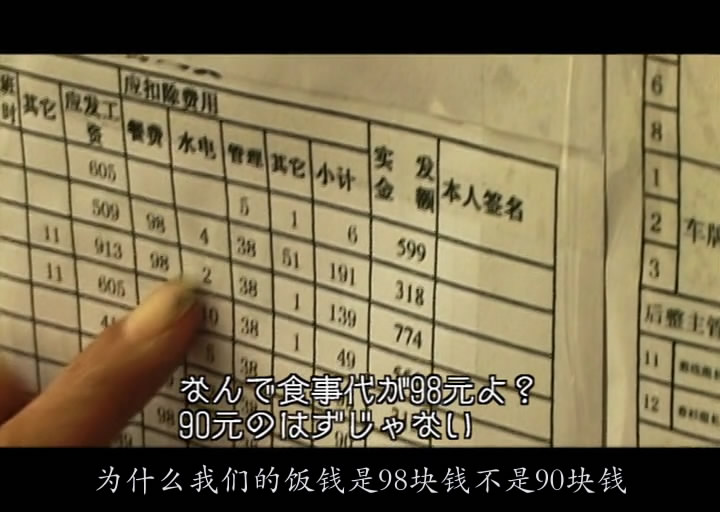 应扣除费用
班时 其它 应发工资 餐费 水电 管理 其它 小计 实发金额 本人签名
605 5 1 6 599
509 98 4 38 51 191 318
11 913 98 2 38 1 139 774
11 605 10 38 1 49
5 38
6
8
1
2 车牌
3
后整主管
11
12
なんで食事代が98元よ？
90元のはずじゃない
为什么我们的饭钱是98块钱不是90块钱